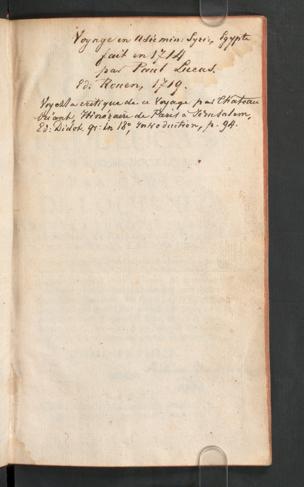 Voyage en Asie min. Syrie, Egypte
fait en 1714
par Paul Lucas.
Ed. Rouen, 1719.
Voyez la critique de ce Voyage par Chateau
briant, Itinéraire de Paris à Jérusalem,
Ed. Didot, in 18°, Introduction, p. 94.